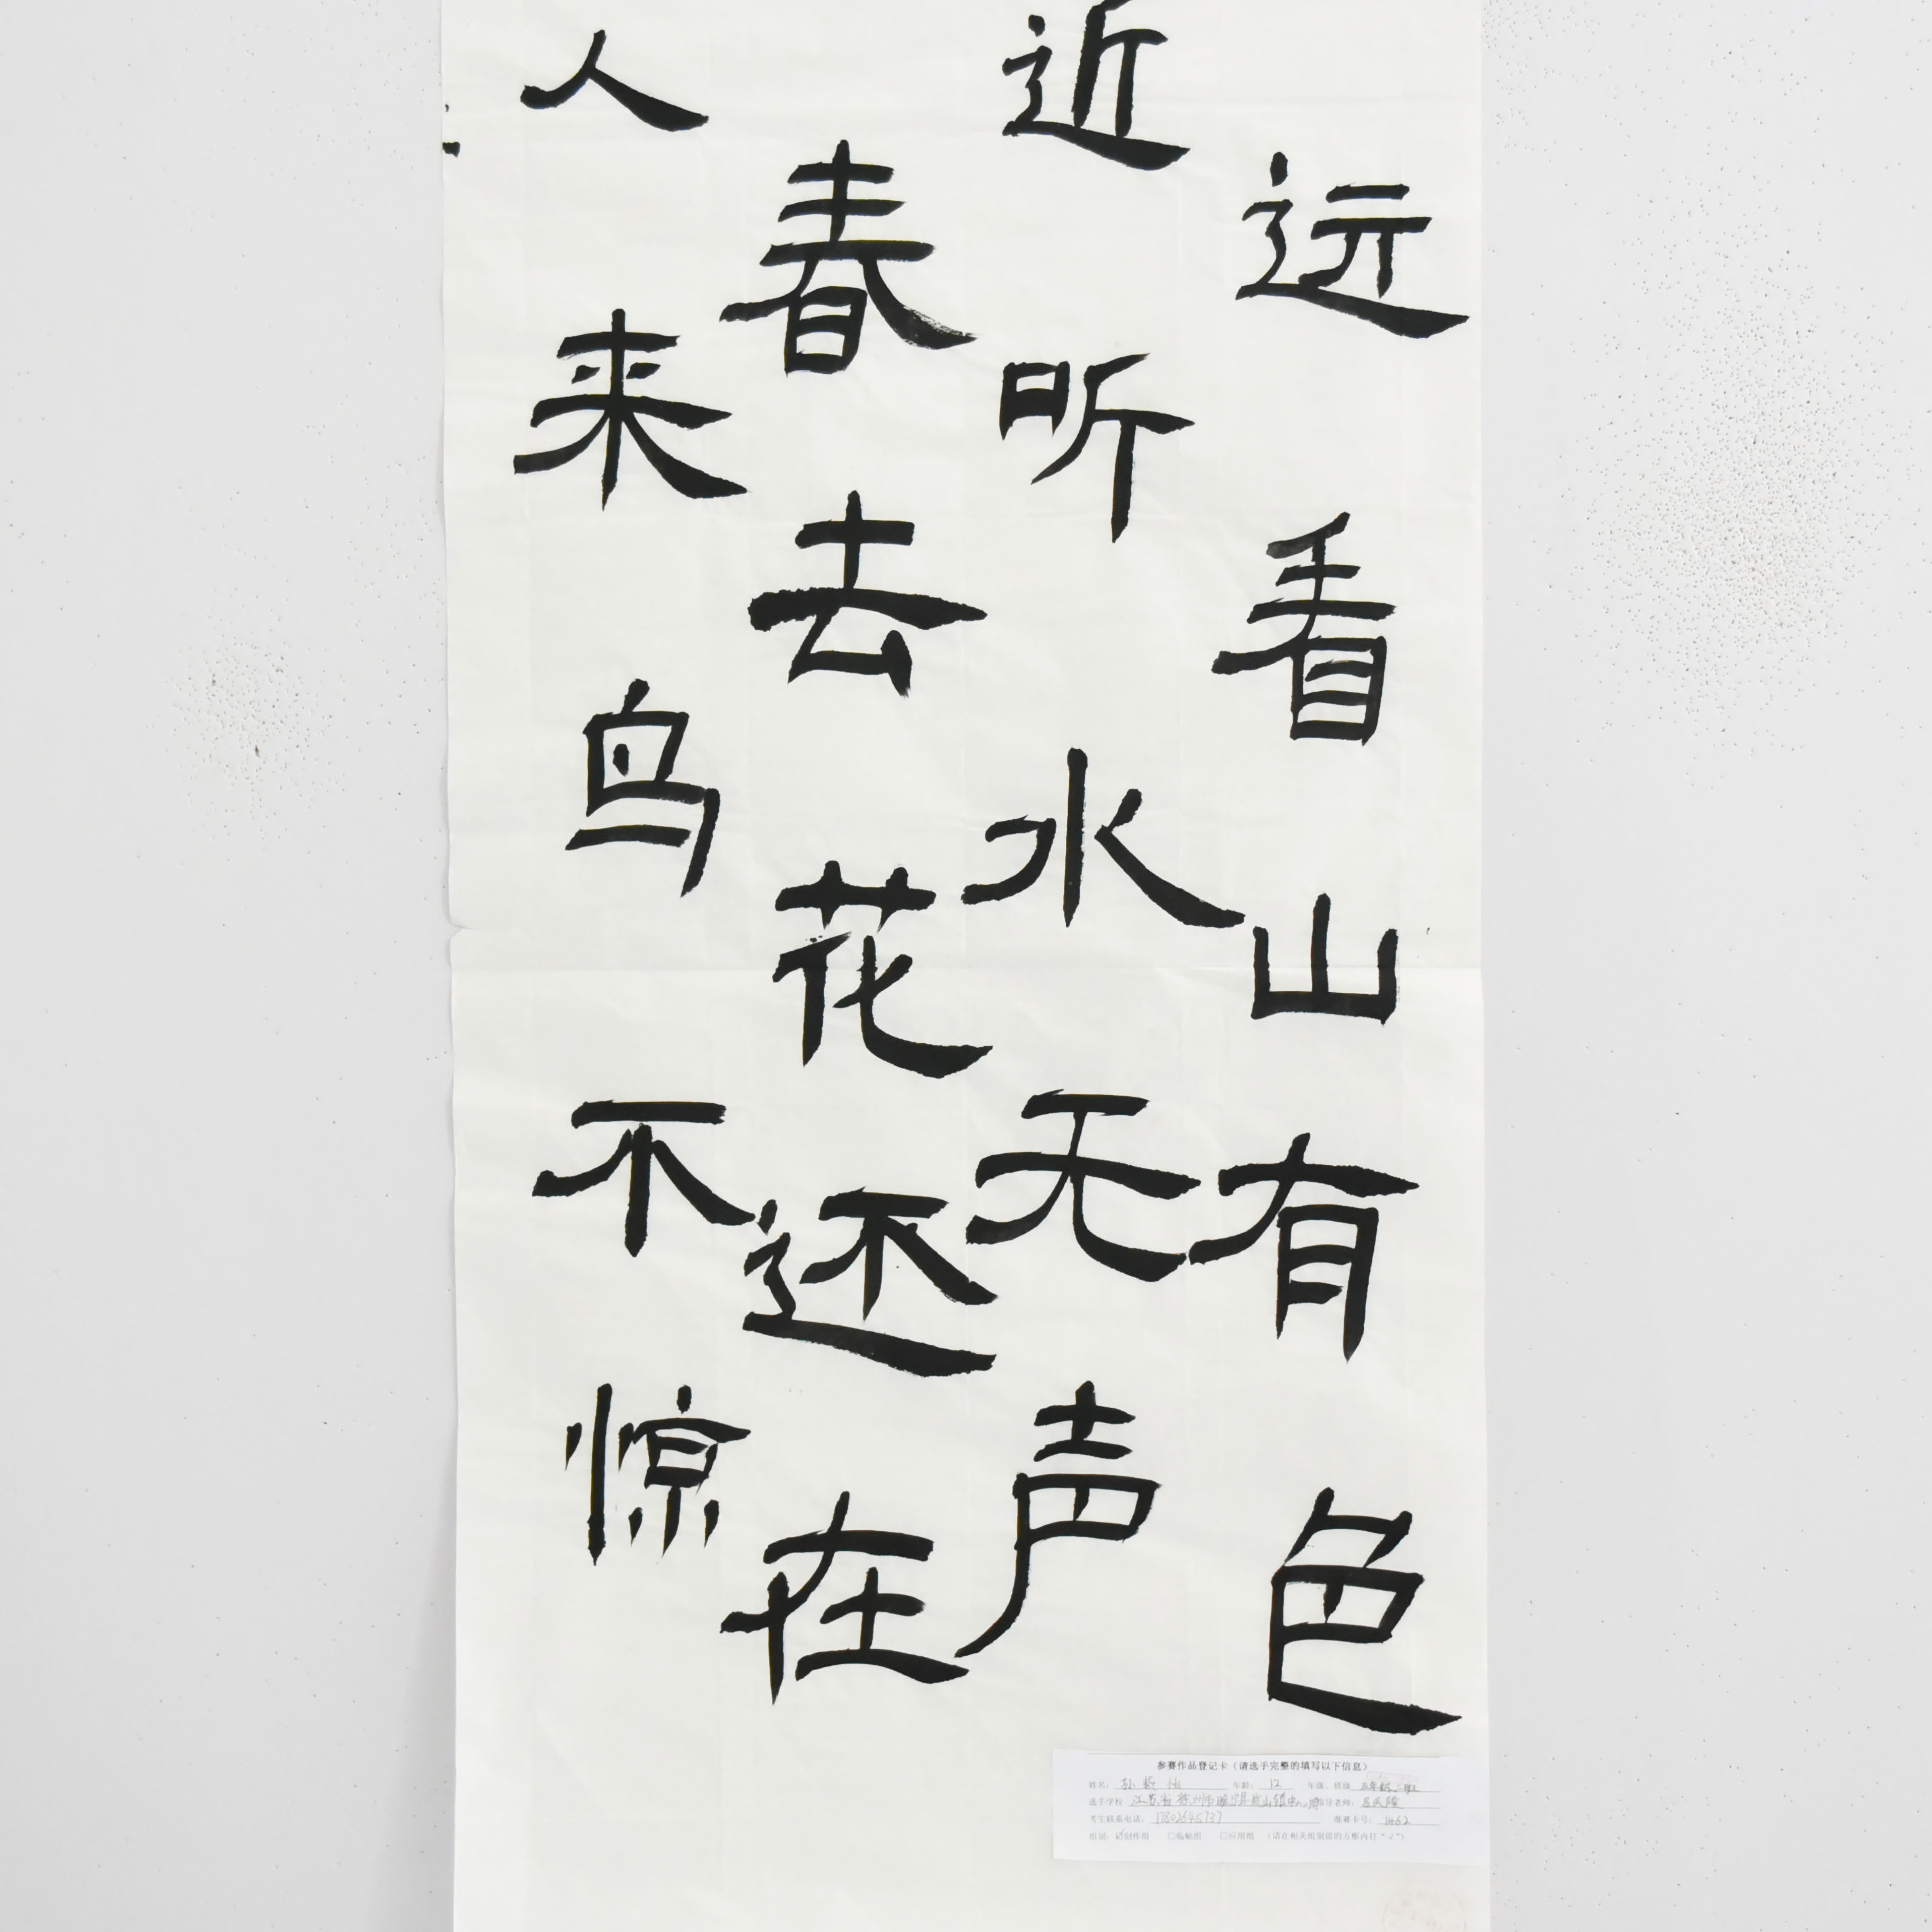 远看山有色
近听水无声
春去花还在
人来鸟不惊
参赛作品登记卡（请选手完整的填写以下信息）
姓名： 年龄：12 年级、班级
选手学校 江苏省徐州市睢宁县 指导老师：
考生联系电话：17802645737 准赛卡号：1462
组别：☑创作组 □临帖组 □应用组 （请在相关组别前的方框内打“√”）